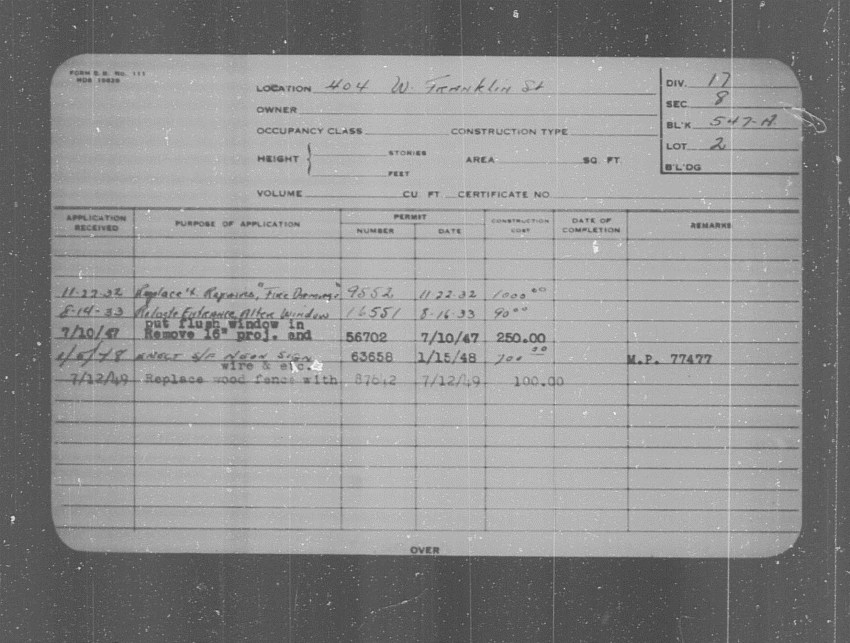 FORM B.B. No. 111
LOCATION 404 W. Franklin St
OWNER
OCCUPANCY CLASS CONSTRUCTION TYPE
HEIGHT { STORIES AREA SQ. FT.
FEET
VOLUME CU FT CERTIFICATE NO
DIV. 17
SEC 8
BL'K 547-A
LOT 2
B'L'DG
APPLICATION RECEIVED PURPOSE OF APPLICATION PERMIT NUMBER DATE CONSTRUCTION COST DATE OF COMPLETION REMARKS
11-22-32 Replace't. Repairs, "Fire Damage" 9552 11 22-32 1000 00
8-14-33 Relocate Entrance Alter Window 16551 8-16-33 90 00
put flush window in
7/10/47 Remove 16" proj. and 56702 7/10/47 250.00
1/5/48 ERECT S/F NEON SIGN 63658 1/15/48 700 00 M.P. 77477
wire & etc.
7/12/49 Replace wood fence with 87642 7/12/49 100.00
OVER